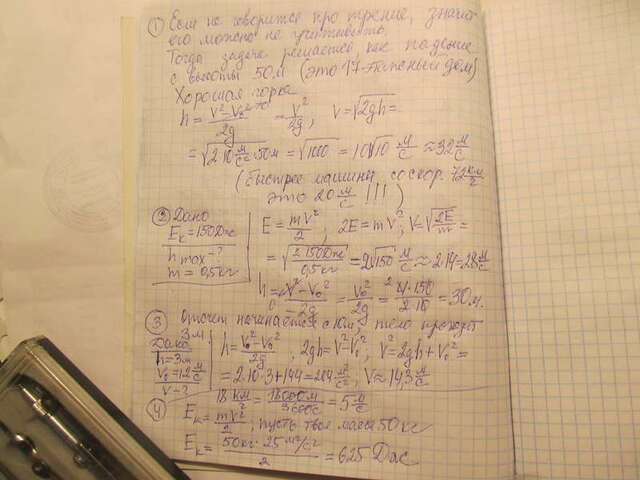 ① Если не говорится про трение, значит
его можно не учитывать.
Тогда задача решается как падение
с высоты 50м (это 17-этажный дом)
Хорошая горка
h = (V² - V₀²)/2g = V²/2g, V = √2gh =
= √(2·10 м/с² · 50м) = √1000 = 10√10 м/с ≈ 32 м/с
(быстрее машины со скор. 72 км/ч
это 20 м/с !!!)
② Дано
Eк = 150Дж
h max - ?
m = 0,5кг
E = mV²/2; 2E = mV²; V = √(2E/m) =
= √(2·150Дж/0,5кг) = 2√150 м/с ≈ 2·14 = 28 м/с
h = V² - V₀²/-2g = V₀²/2g = 4·150/2·10 = 30м.
③ Отсчет начинается с 10м, тело проходит
3м
Дано
h = 3м
V₀ = 12 м/с
V - ?
h = V² - V₀²/2g, 2gh = V² - V₀²; V² = 2gh + V₀² =
= 2·10·3 + 144 = 204 м²/с², V ≈ 14,3 м/с
④ 18 км = 18000м/3600с = 5 м/с
Eк = mV²/2; пусть твоя масса 50кг
Eк = 50кг · 25 м²/с²/2 = 625 Дж